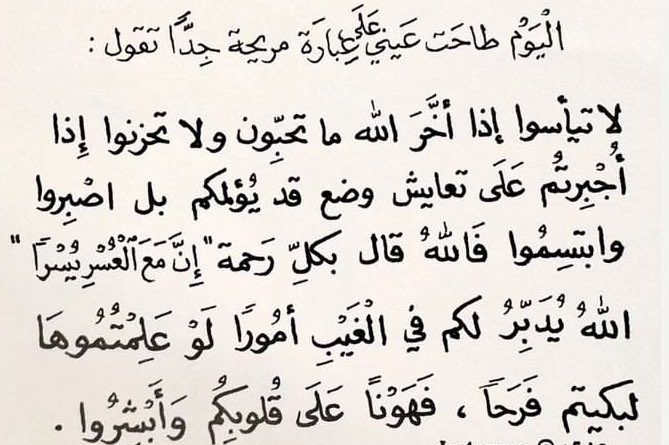 الْيَوْم طاحَت عَيني عَلَى عِبارَة مريحة جِدًّا تقول :
لا تيأسوا إذا أخَّرَ الله ما تحبّون ولا تحزنوا إِذا
أُجْبِرتُم عَلَى تعايش وضع قد يُؤلمكم بل اصْبِروا
وابتسِمُوا فَاللهُ قال بكلِّ رَحمة " إِنَّ مَعَ الْعُسْرِ يُسْراً "
اللهُ يُدَبِّرُ لكم في الْغَيْبِ أمُورًا لَوْ عَلِمْتُمُوهَا
لبكيتم فَرَحَاً ، فَهَوْنَاً عَلَى قُلوبِكُم وَأَبْشِرُوا .